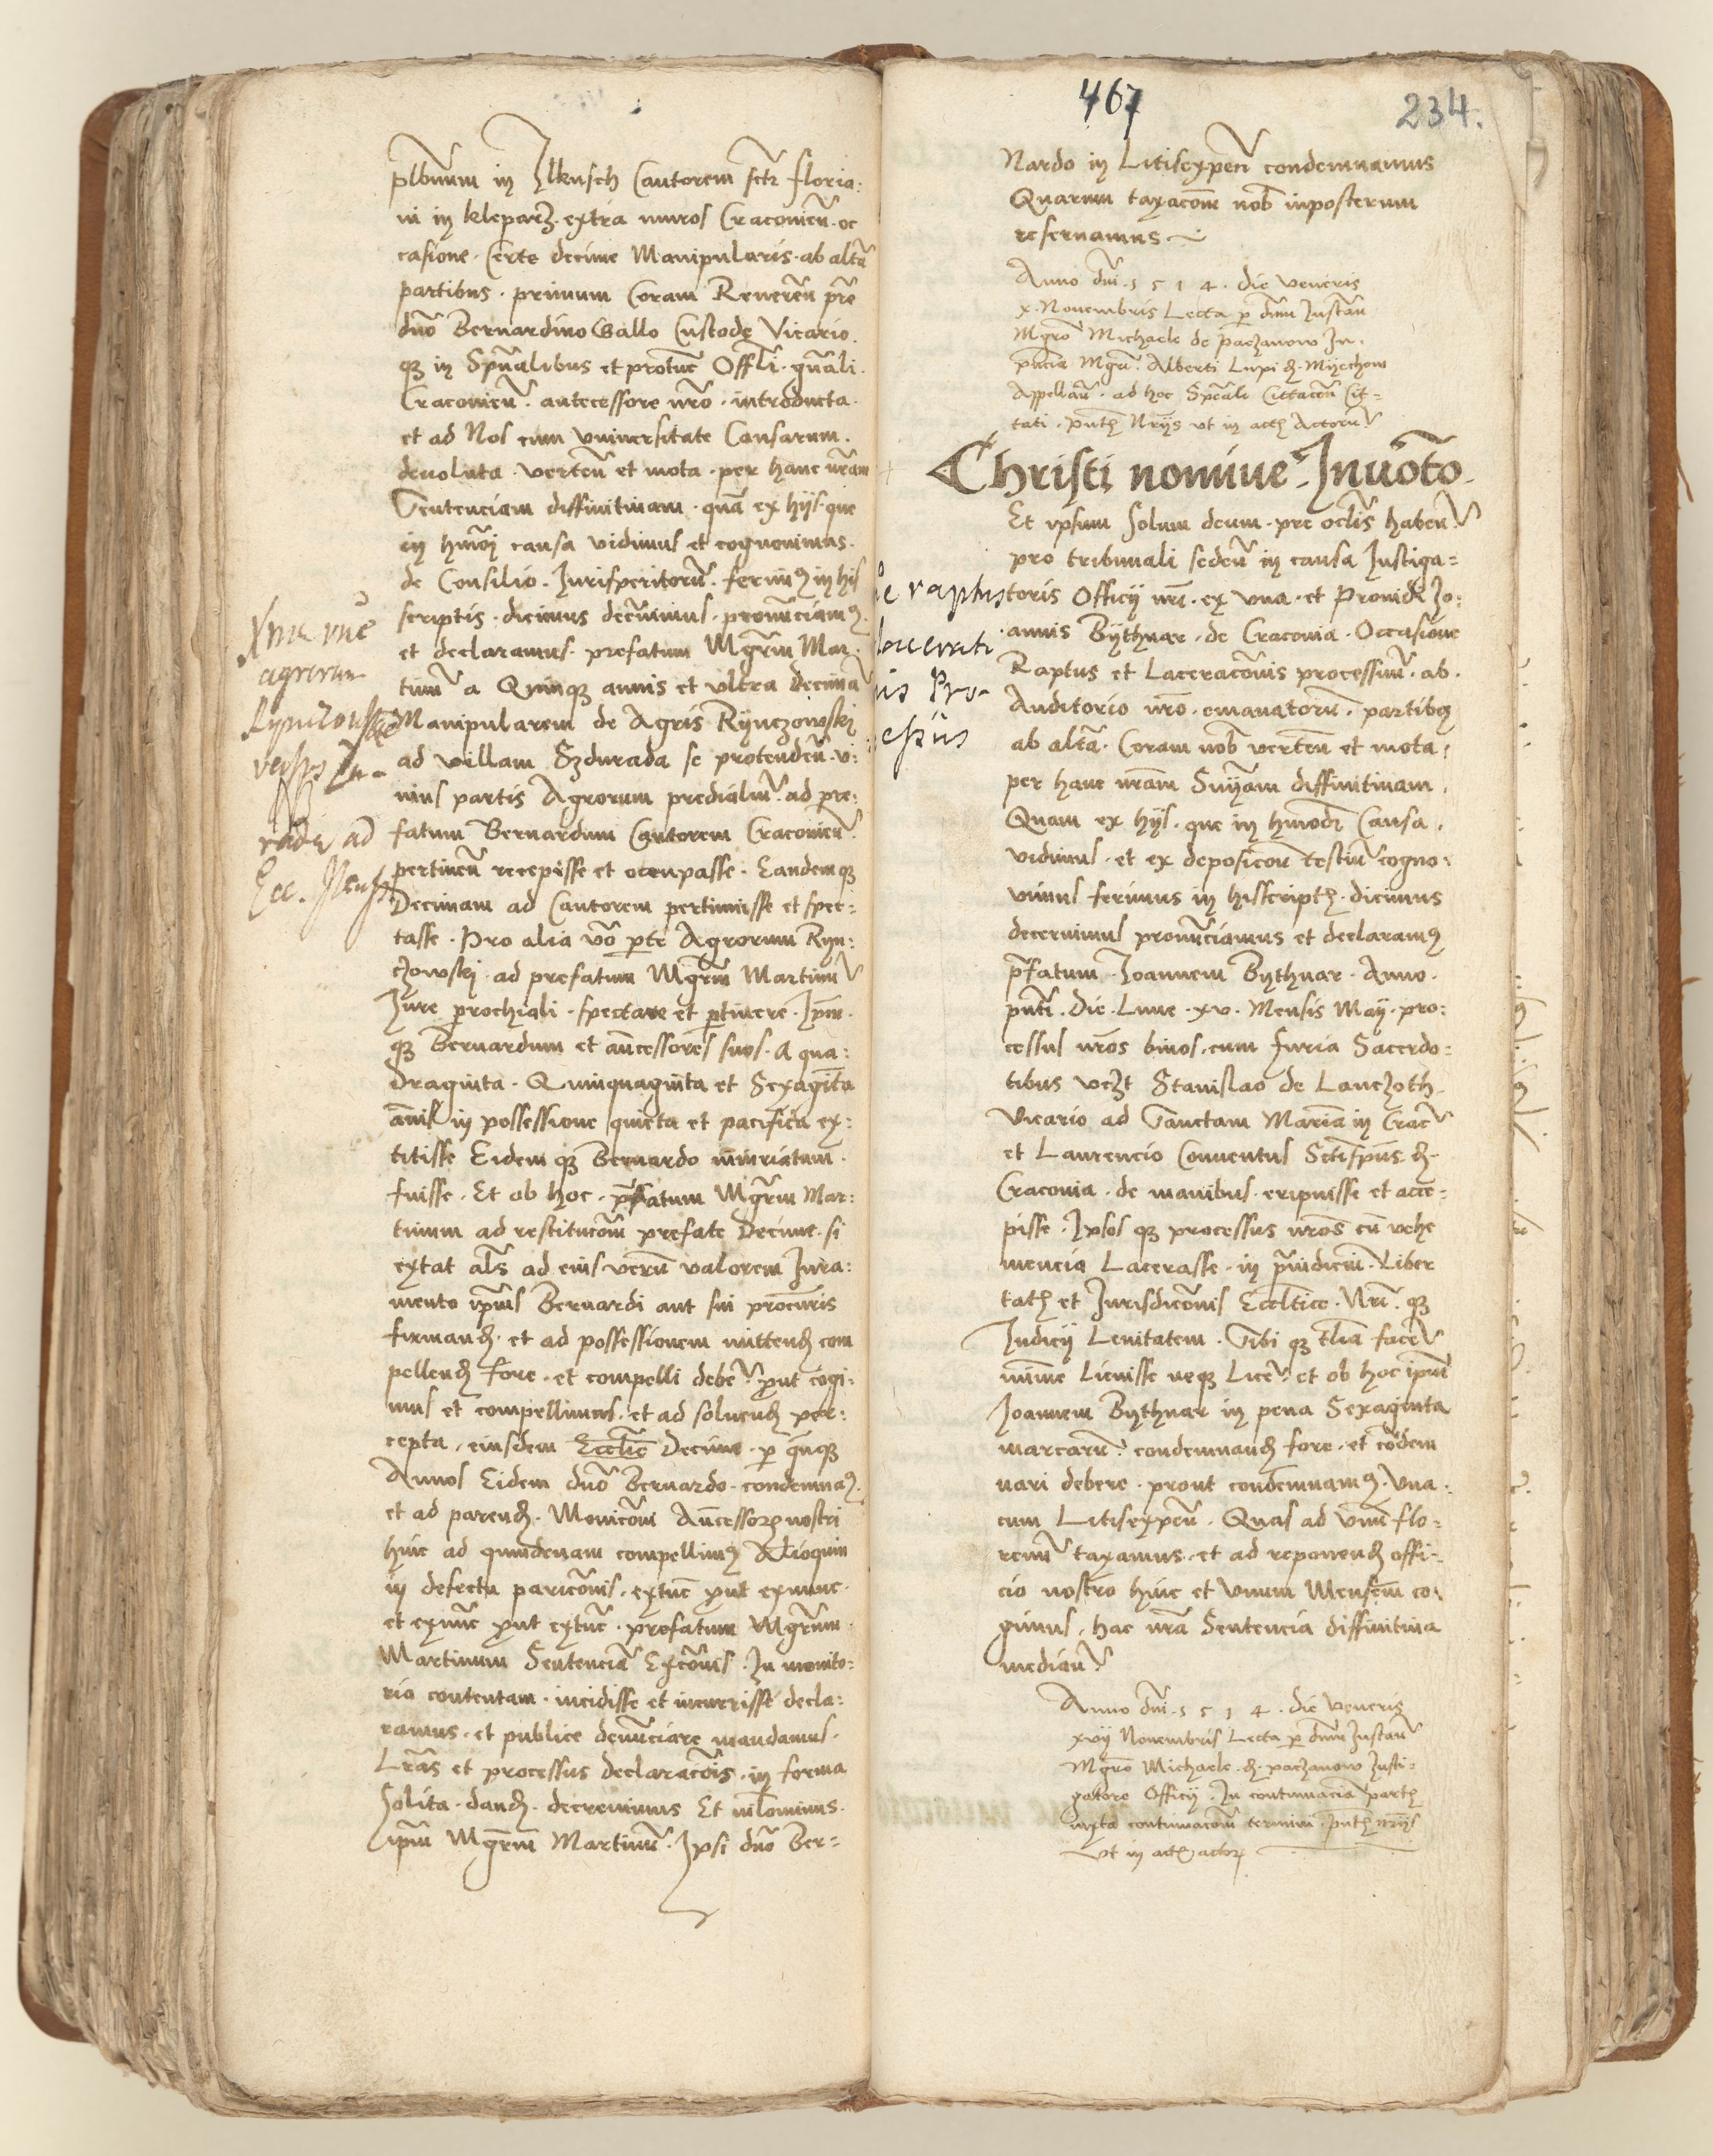 plbnum in Ilkusch Cantorem scti Floria:
ni in kleparz. extra muros Cracovien. oc
casione. Certe decime Manipularis. ab altera
partibus. primum Coram Reveren pre
dno Bernardino Gallo Custode Vicario.
qz in Spualibus et protunc Offli. gnali.
Cracovien. antecessore nro. introducta.
et ad Nos cum universitate Causarum.
devoluta. verten et mota. per hanc nram
Sentenciam diffinitivam. qua ex hijs. que
in hmoi causa vidimus et cognovimus.
de Consilio. Jurisperitoru. ferim9 in his
scriptis. dicimus decernimus. pronunciam9
et declaramus. prefatum Mgrm Mar:
tinu a Quinqz annis et ultra Decima
Manipularem de Agris Rynczowski
ad villam Szdurada se protenden. v:
nius partis Agrorum predialiu. ad pre:
fatum Bernardum Cantorem Cracovien.
pertinen recepisse et occupasse. Eandemqz
Decimam ad Cantorem pertinuisse et spec:
tasse. Pro alia vo pte Agrorum Ryn:
czowski. ad prefatum Mgrm Martinu
Jure prochiali. spectare et ptinere. Ipm.
qz Bernardum et ancessores suos. A qua:
draginta. Quinquaginta et Sexaginta
annis in possessione quieta et pacifica ex:
titisse Eidem qz Bernardo iniuriatum.
fuisse. Et ob hoc. pfatum Mgrm Mar:
tinum ad restitucom prefate Decime. si
extat als ad eius veru valorem Jura:
mento ipius Bernardi aut sui procuris
firmand. et ad possessionem mittend com
pellend fore. et compelli debe. put cogi:
mus et compellimus. et ad solvend per:
cepta. eiusdem Ecclie Decime. p qnqz
Annos Eidem dno Bernardo. condemna9.
et ad parend. Monicom Ancessorz nostri
hinc ad quindenam compellim9 Alioquin
in defectu paricois. extunc put exnunc.
et exnunc put extunc. prefatum Mgrum.
Martinum Sentencia Excois. In monito:
rio contentam. incidisse et incurrisse decla:
ramus. et publice denunciare mandamus.
Lras et processus declaracois. in forma
Solita. dand. decrevimus Et nilominus.
ipm Mgrm Martinu. Ipsi dno Ber=
agrorum
467
234.
Nardo in Litisexpen condemnamus
Quarum taxacom nob inposterum
reservamus.
Anno dni. 1514. die Veneris
x. Novembris Lecta p dnm Instan
Mgro Michaele de Paczanow In.
pncia Mgri. Alberti Lupi d. Myechow
Appellan. ad hoc Speali Cittacon Cit=
tati. pntz Nrijs ut in actz Actoru
Christi nomine. Invocto.
Et ipsum Solum deum. pre oclis haben
pro tribunali seden in causa Instiga=
toris Officij nri. ex una. et Providi Jo:
annis Bythnar. de Cracovia. Occasione
Raptus et Laceracois processuu. ab.
Auditorio nro. emanatoru. partibz
ab altra. Coram nob verten et mota.
per hanc nram Snijam diffinitivam.
Quam ex hijs. que in hmodi Causa.
vidimus. et ex deposicon testiu cogno:
vimus ferimus in hisscriptz. dicimus
decernimus pronunciamus et declaram9
pfatum. Joannem Bythnar. Anno.
pnti. Die. Lune. xv. Mensis May. pro:
cessus nros binos. cum furia Sacerdo:
tibus vczt Stanislao de Lanczoth.
Vicario ad Sanctam Maria in Crac
et Laurencio Conventus Sctispus. d.
Cracovia. de manibus. eripuisse et acce=
pisse. Ipsos qz processus nros cu vehe
mencia Lacerasse. in piudiciu. Liber
tatz et Jurisdicois Eccltice. Nri. qz
Judicij Lenitatem. Sibi qz tlia face
minime Licuisse neqz Lice. et ob hoc ipm
Joannem Bythnar in pena Sexaginta
marcaru. condemnand fore. et conde
nari debere. prout condemnam9. Una.
cum Litisexpen. Quas ad Unu flo=
renu taxamus. et ad reponend offi=
cio nostro hinc et Unum Mensem co:
gimus. hac nra Sentencia diffinitiva
median
Anno dni. 1514. die Veneris
xvij Novembris Lecta p dnm Instan
Mgro Michaele. d. paczanow Insti=
gatore Officij. In contumacia partz
iuxta continuacom termini. pntz nrijs
Ut in actz actorz